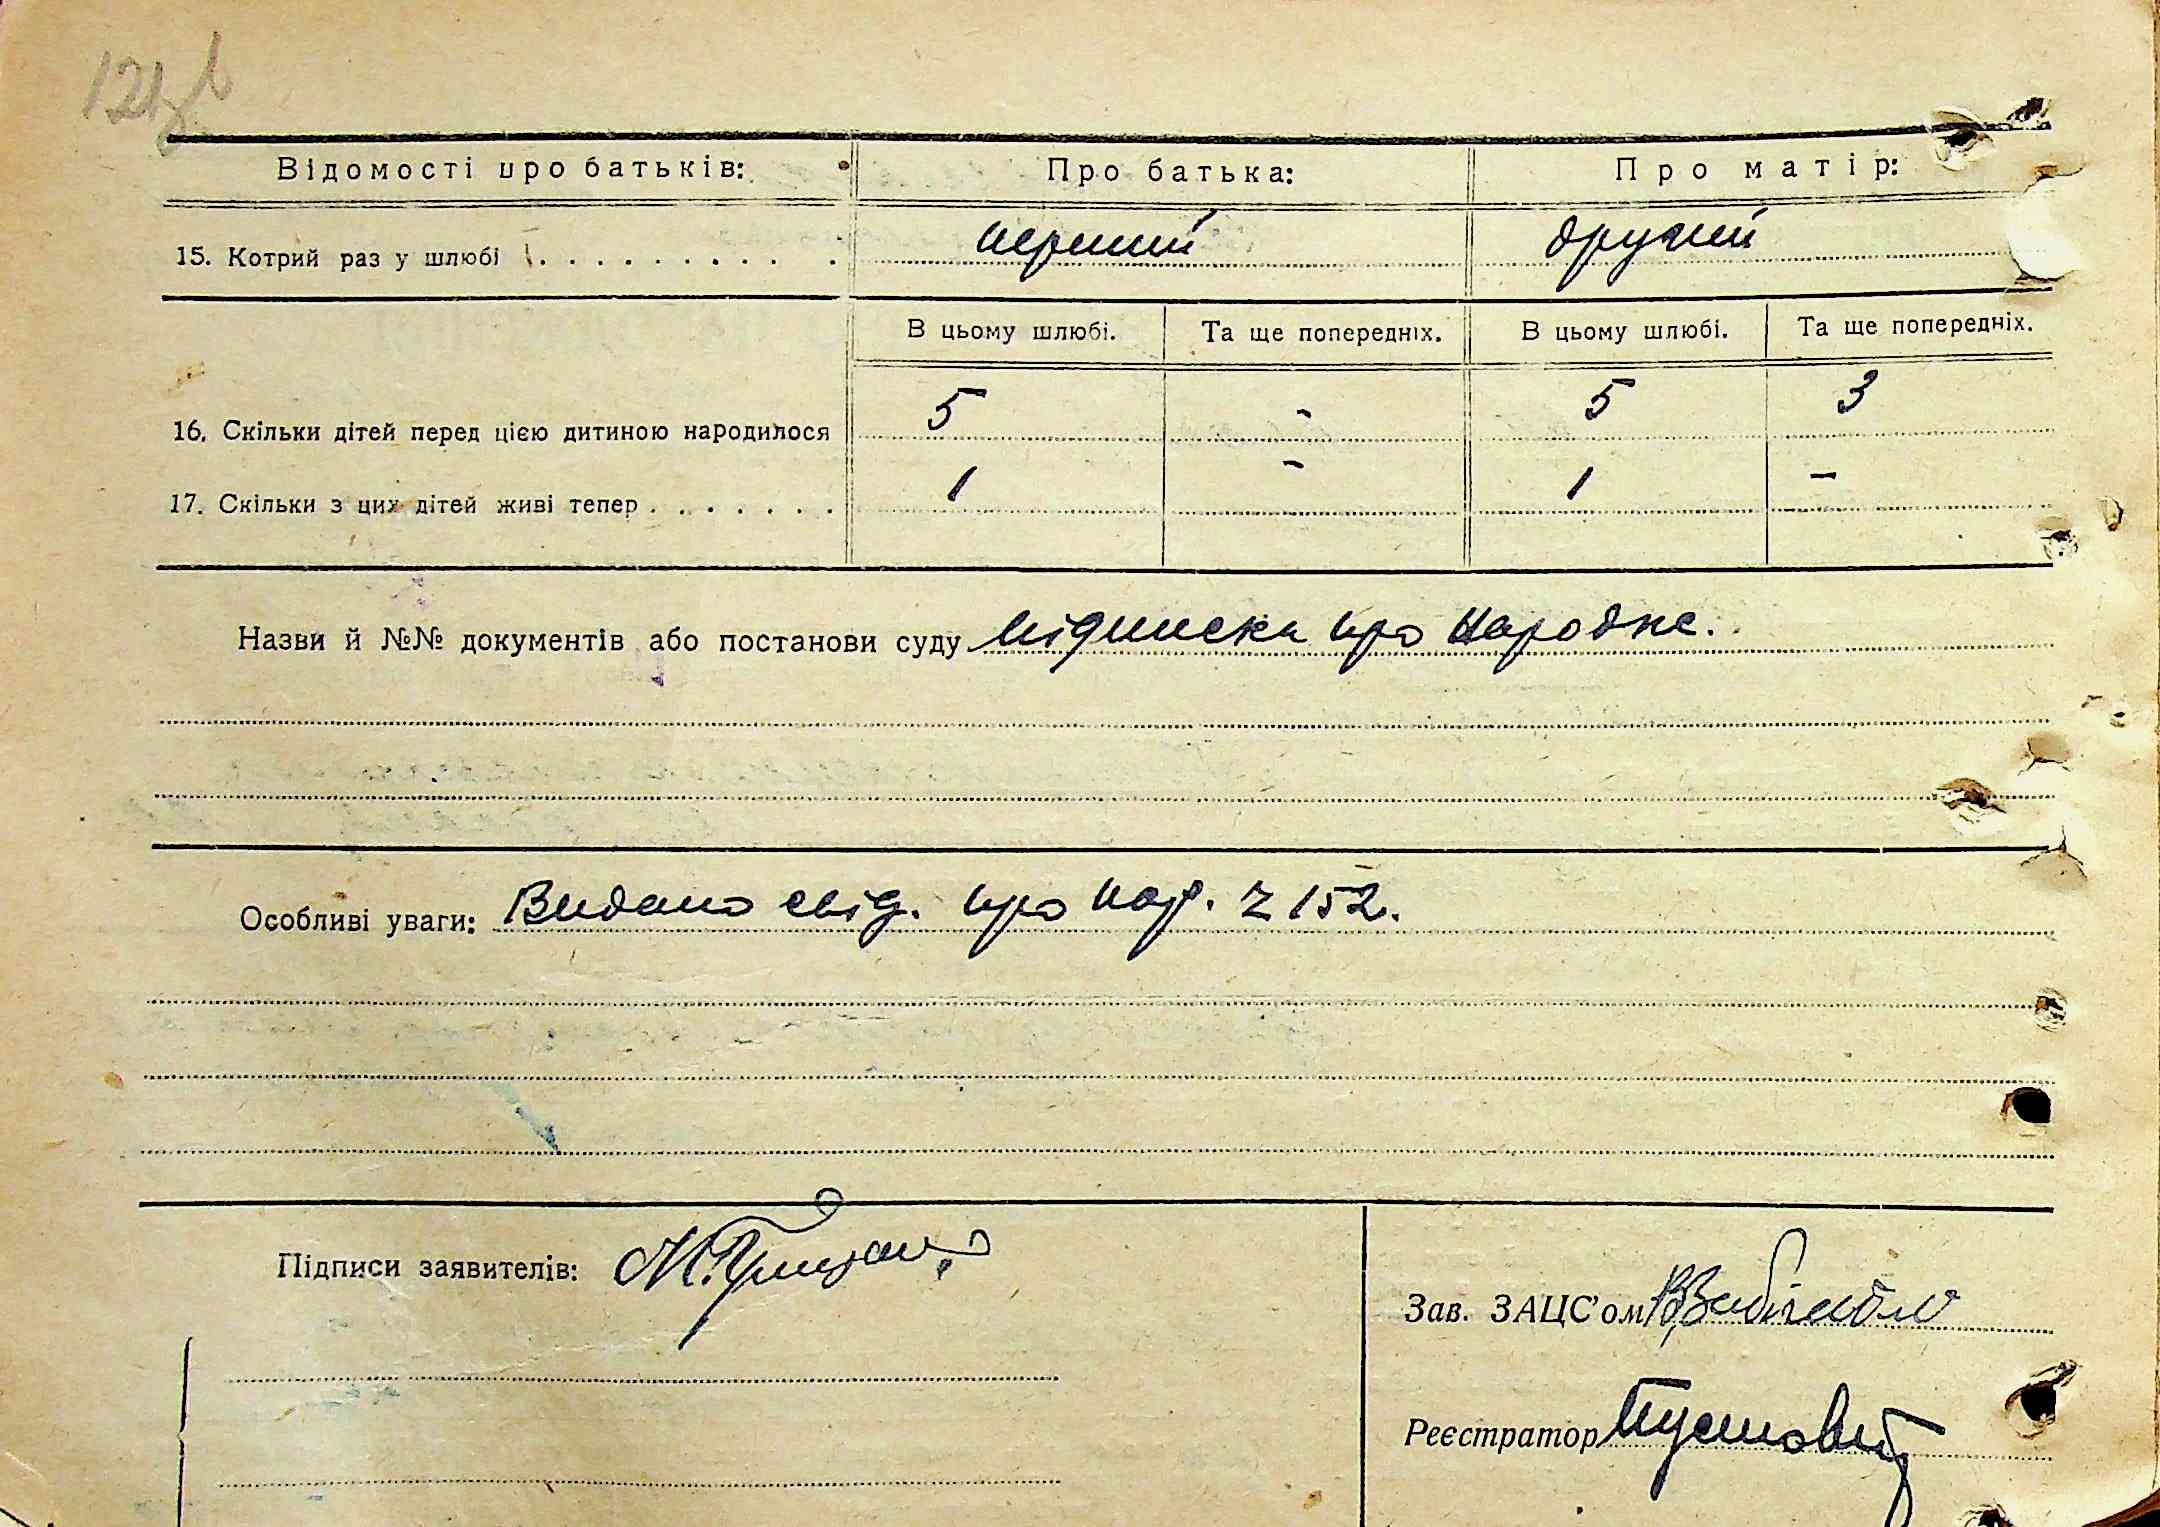 Відомості про батьків: Про батька: Про матір:
15. Котрий раз у шлюбі . . . . . . . . . . перший другий
В цьому шлюбі. Та ще попередніх. В цьому шлюбі. Та ще попередніх.
16. Скільки дітей перед цією дитиною народилося 5 - 5 3
17. Скільки з цих дітей живі тепер . . . . . . . 1 - 1 -
Назви й №№ документів або постанови суду підписка про народже.
Особливі уваги: Видано свід. про нар. Z 152.
Підписи заявителів:
Зав. ЗАЦС'ом
Реєстратор Пустовіт